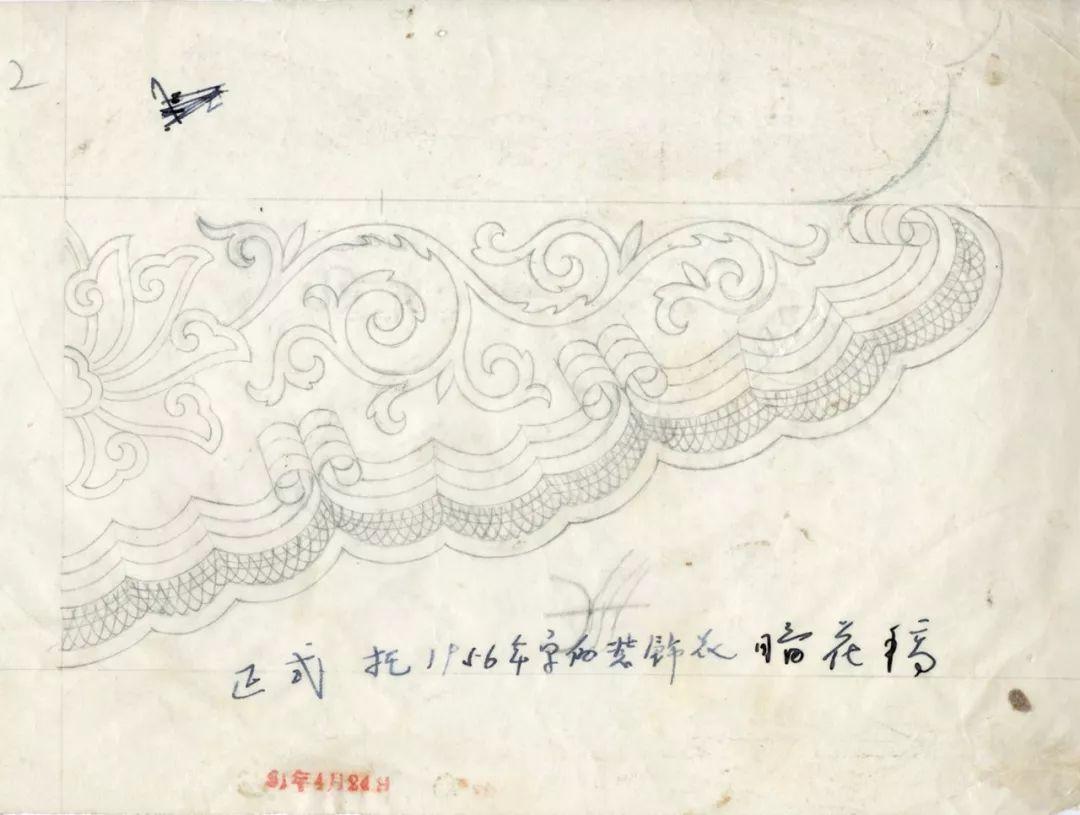 2
正式 托1956年字的装飾花 暗花稿
81年4月24日